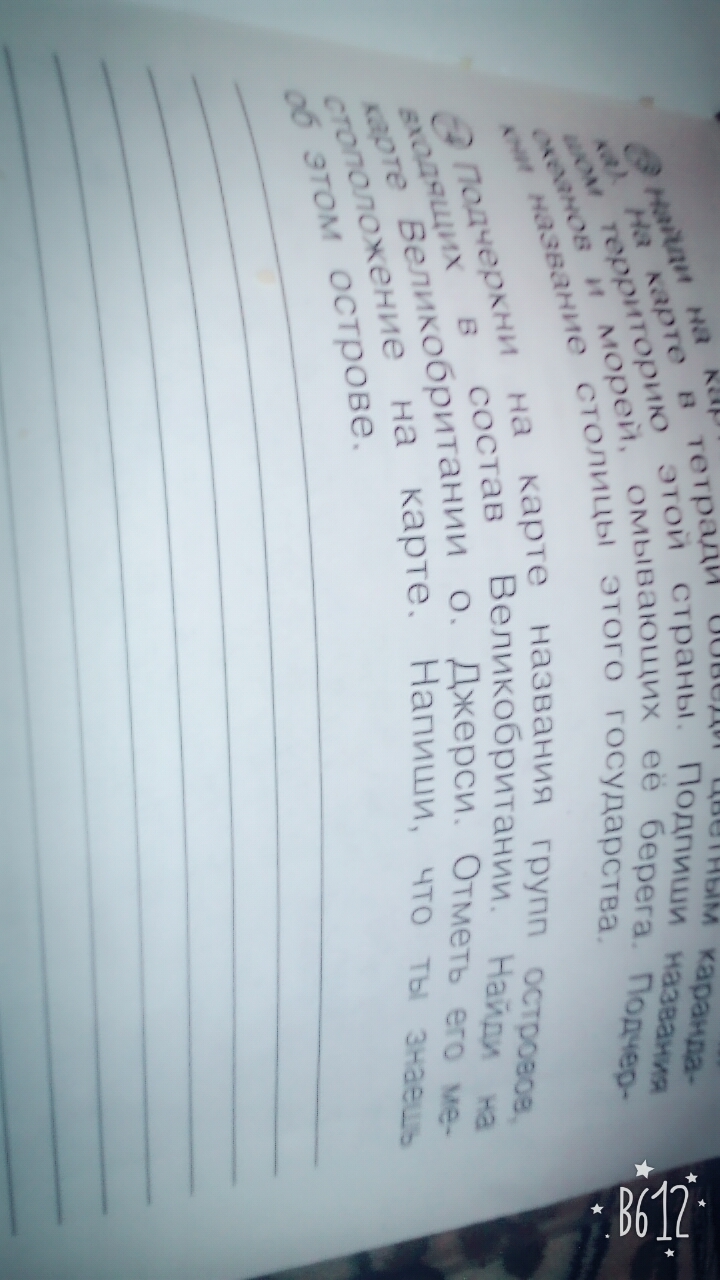 Найди на
ка). На карте в тетради обведи цветным каранда-
шом территорию этой страны. Подпиши названия
океанов и морей, омывающих её берега. Подчер-
кни название столицы этого государства.
Подчеркни на карте названия групп островов,
входящих в состав Великобритании. Найди на
карте Великобритании о. Джерси. Отметь его ме-
стоположение на карте. Напиши, что ты знаешь
об этом острове.
B612